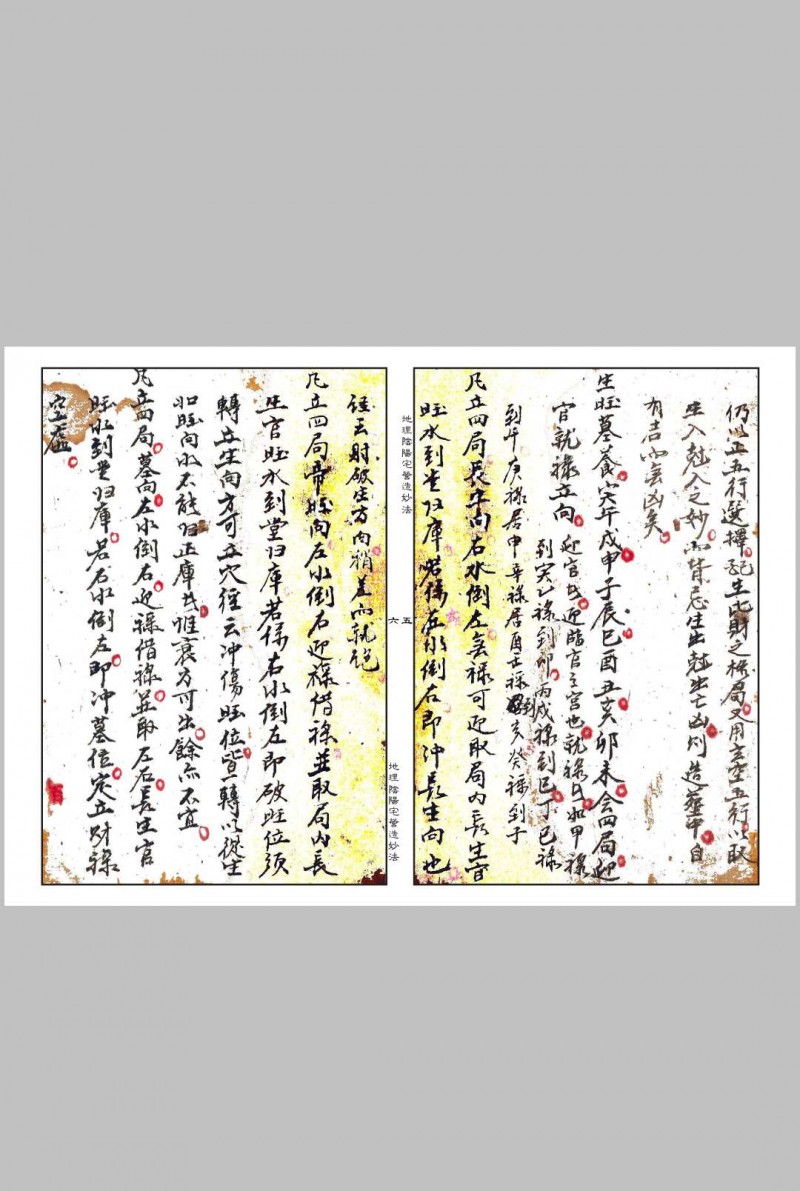 仍以正五行選擇配生比財之格局又用玄空五行以取
生入尅入之妙而皆忌生出尅出亡凶則造葬中自
有吉而無凶矣
生旺墓養寅午戌申子辰巳酉丑亥卯未合四局迎
官就祿立向
迎官者迎臨官之宮也就祿者如甲祿
到寅乙祿到卯丙戊祿到巳丁己祿
到午庚祿居申辛祿居酉壬祿到亥癸祿到子
凡立四局長生向右水倒左無祿可迎取局內長生官
旺水到堂归庫若係左水倒右即沖長生向也
地理陰陽宅營造妙法
五
六
地理陰陽宅營造妙法
經云財破生方向稍差而就絕
凡立四局帝旺向左水倒右迎祿借祿並取局內長
生官旺水到堂归庫若係右水倒左即破旺位須
轉立生向方可立穴經云沖傷旺位皆一轉以從生
如旺向水不能归正庫者惟衰方可出餘亦不宜
凡立四局墓向左水倒右迎祿借祿並取左右長生官
旺水到堂归庫若右水倒左即沖墓位定立財祿
空虛